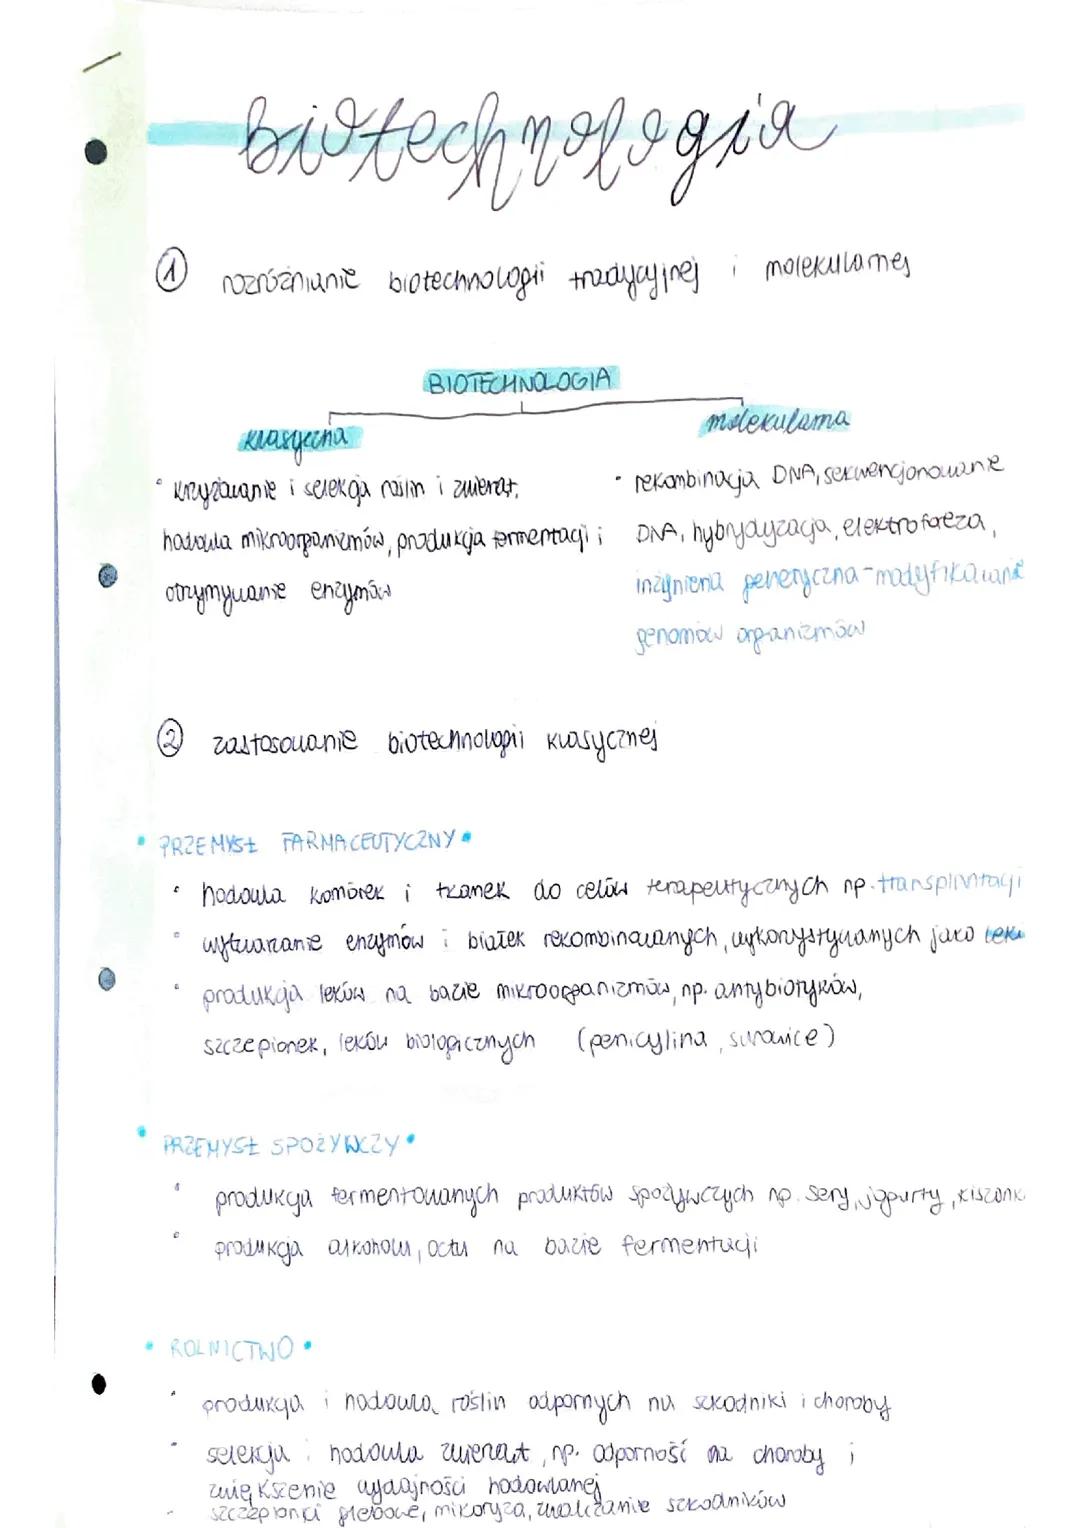 biotechnologia
1 rozróżnianie biotechnologii tradycyjnej i molekularnej
BIOTECHNOLOGIA
klasyczna
molekularna
krzyżowanie i selekcja roślin i zwierząt,
hodowla mikroorganizmów, produkcja fermentacji i
otrzymywanie enzymów
rekombinacja DNA, sekwencjonowanie
DNA, hybrydyzacja, elektroforeza,
inżynieria genetyczna - modyfikowanie
genomów organizmów
2 zastosowanie biotechnologii klasycznej
• PRZEMYSŁ FARMACEUTYCZNY •
hodowla komórek i tkanek do celów terapeutycznych np. transplantacji
wytwarzanie enzymów i białek rekombinowanych, wykorzystywanych jako leki
produkcja leków na bazie mikroorganizmów, np. antybiotyków,
szczepionek, leków biologicznych (penicylina, surowice)
• PRZEMYSŁ SPOŻYWCZY •
produkcja fermentowanych produktów spożywczych np. sery, jogurty, kiszonk
produkcja alkoholu, octu na bazie fermentacji
• ROLNICTWO •
produkcja i hodowla roślin odpornych na szkodniki i choroby
selekcja i hodowla zwierząt, np. odporność na choroby i
zwiększenie wydajności hodowlanej
szczepionki glebowe, mikoryza, zwalczanie szkodników